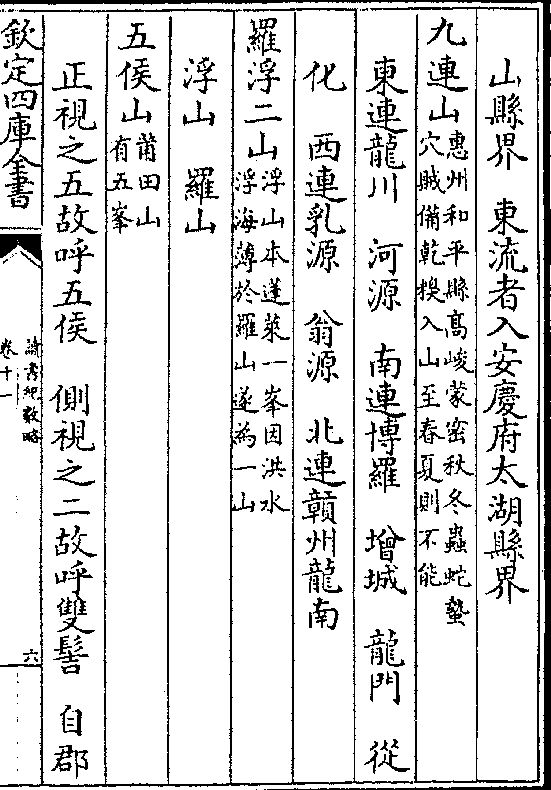 山縣界　東流者入安慶府太湖縣界
九連山惠州和平縣髙峻蒙宻秋冬蟲蛇蟄
穴賊備乾糗入山至春夏則不能
東連龍川　河源　南連博羅　增城　龍門　從
化　西連乳源　翁源　北連贛州龍南
羅浮二山浮山本蓬萊一峯因洪水
浮海薄於羅山遂為一山
浮山　羅山
五侯山莆田山
有五峯
正視之五故呼五侯　側視之二故呼雙髻　自郡
欽定四庫全書
讀書紀數略
卷十一
六